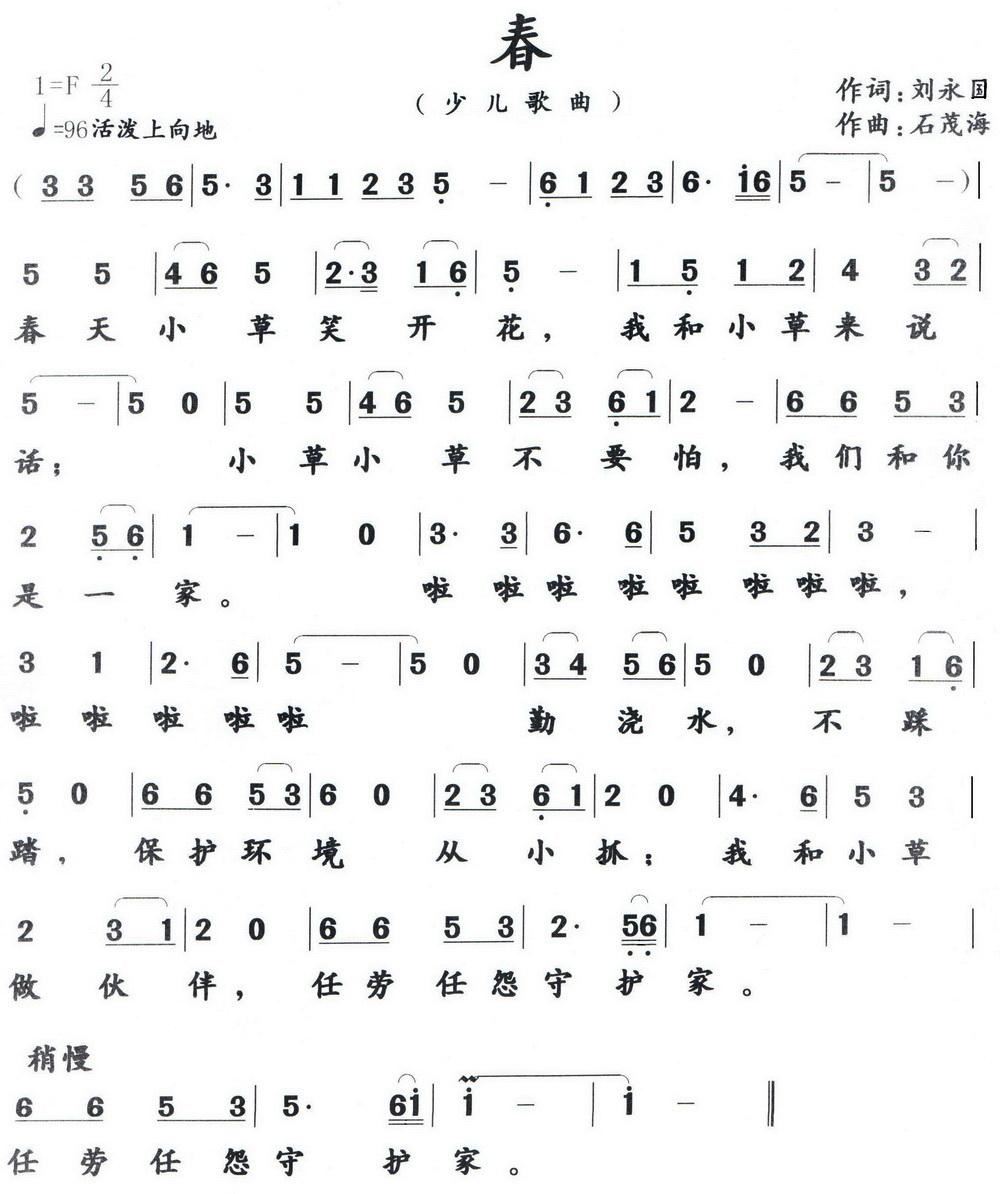 春
1=F 2/4
(少儿歌曲)
作词:刘永国
♩=96活泼上向地
作曲:石茂海
( 3 3 5 6 | 5· 3 | 1 1 2 3 5 － | 6 1 2 3 | 6· i6 | 5 － | 5 － ) |
5 5 | 4 6 5 | 2·3 1 6 | 5 － | 1 5 1 2 | 4 3 2 |
春天小草笑开花，我和小草来说
5 － | 5 0 | 5 5 | 4 6 5 | 2 3 6 1 | 2 － | 6 6 5 3 |
话；小草小草不要怕，我们和你
2 5 6 | 1 － | 1 0 | 3· 3 | 6· 6 | 5 3 2 | 3 － |
是一家。啦啦啦啦啦啦啦啦，
3 1 | 2· 6 | 5 － | 5 0 | 3 4 5 6 | 5 0 | 2 3 1 6 |
啦啦啦啦啦 勤浇水，不踩
5 0 | 6 6 5 3 | 6 0 | 2 3 6 1 | 2 0 | 4· 6 | 5 3 |
踏，保护环境从小抓；我和小草
2 3 1 | 2 0 | 6 6 5 3 | 2· 56 | 1 － | 1 － |
做伙伴，任劳任怨守护家。
稍慢
6 6 5 3 | 5· 6i | i － | i － ‖
任劳任怨守护家。